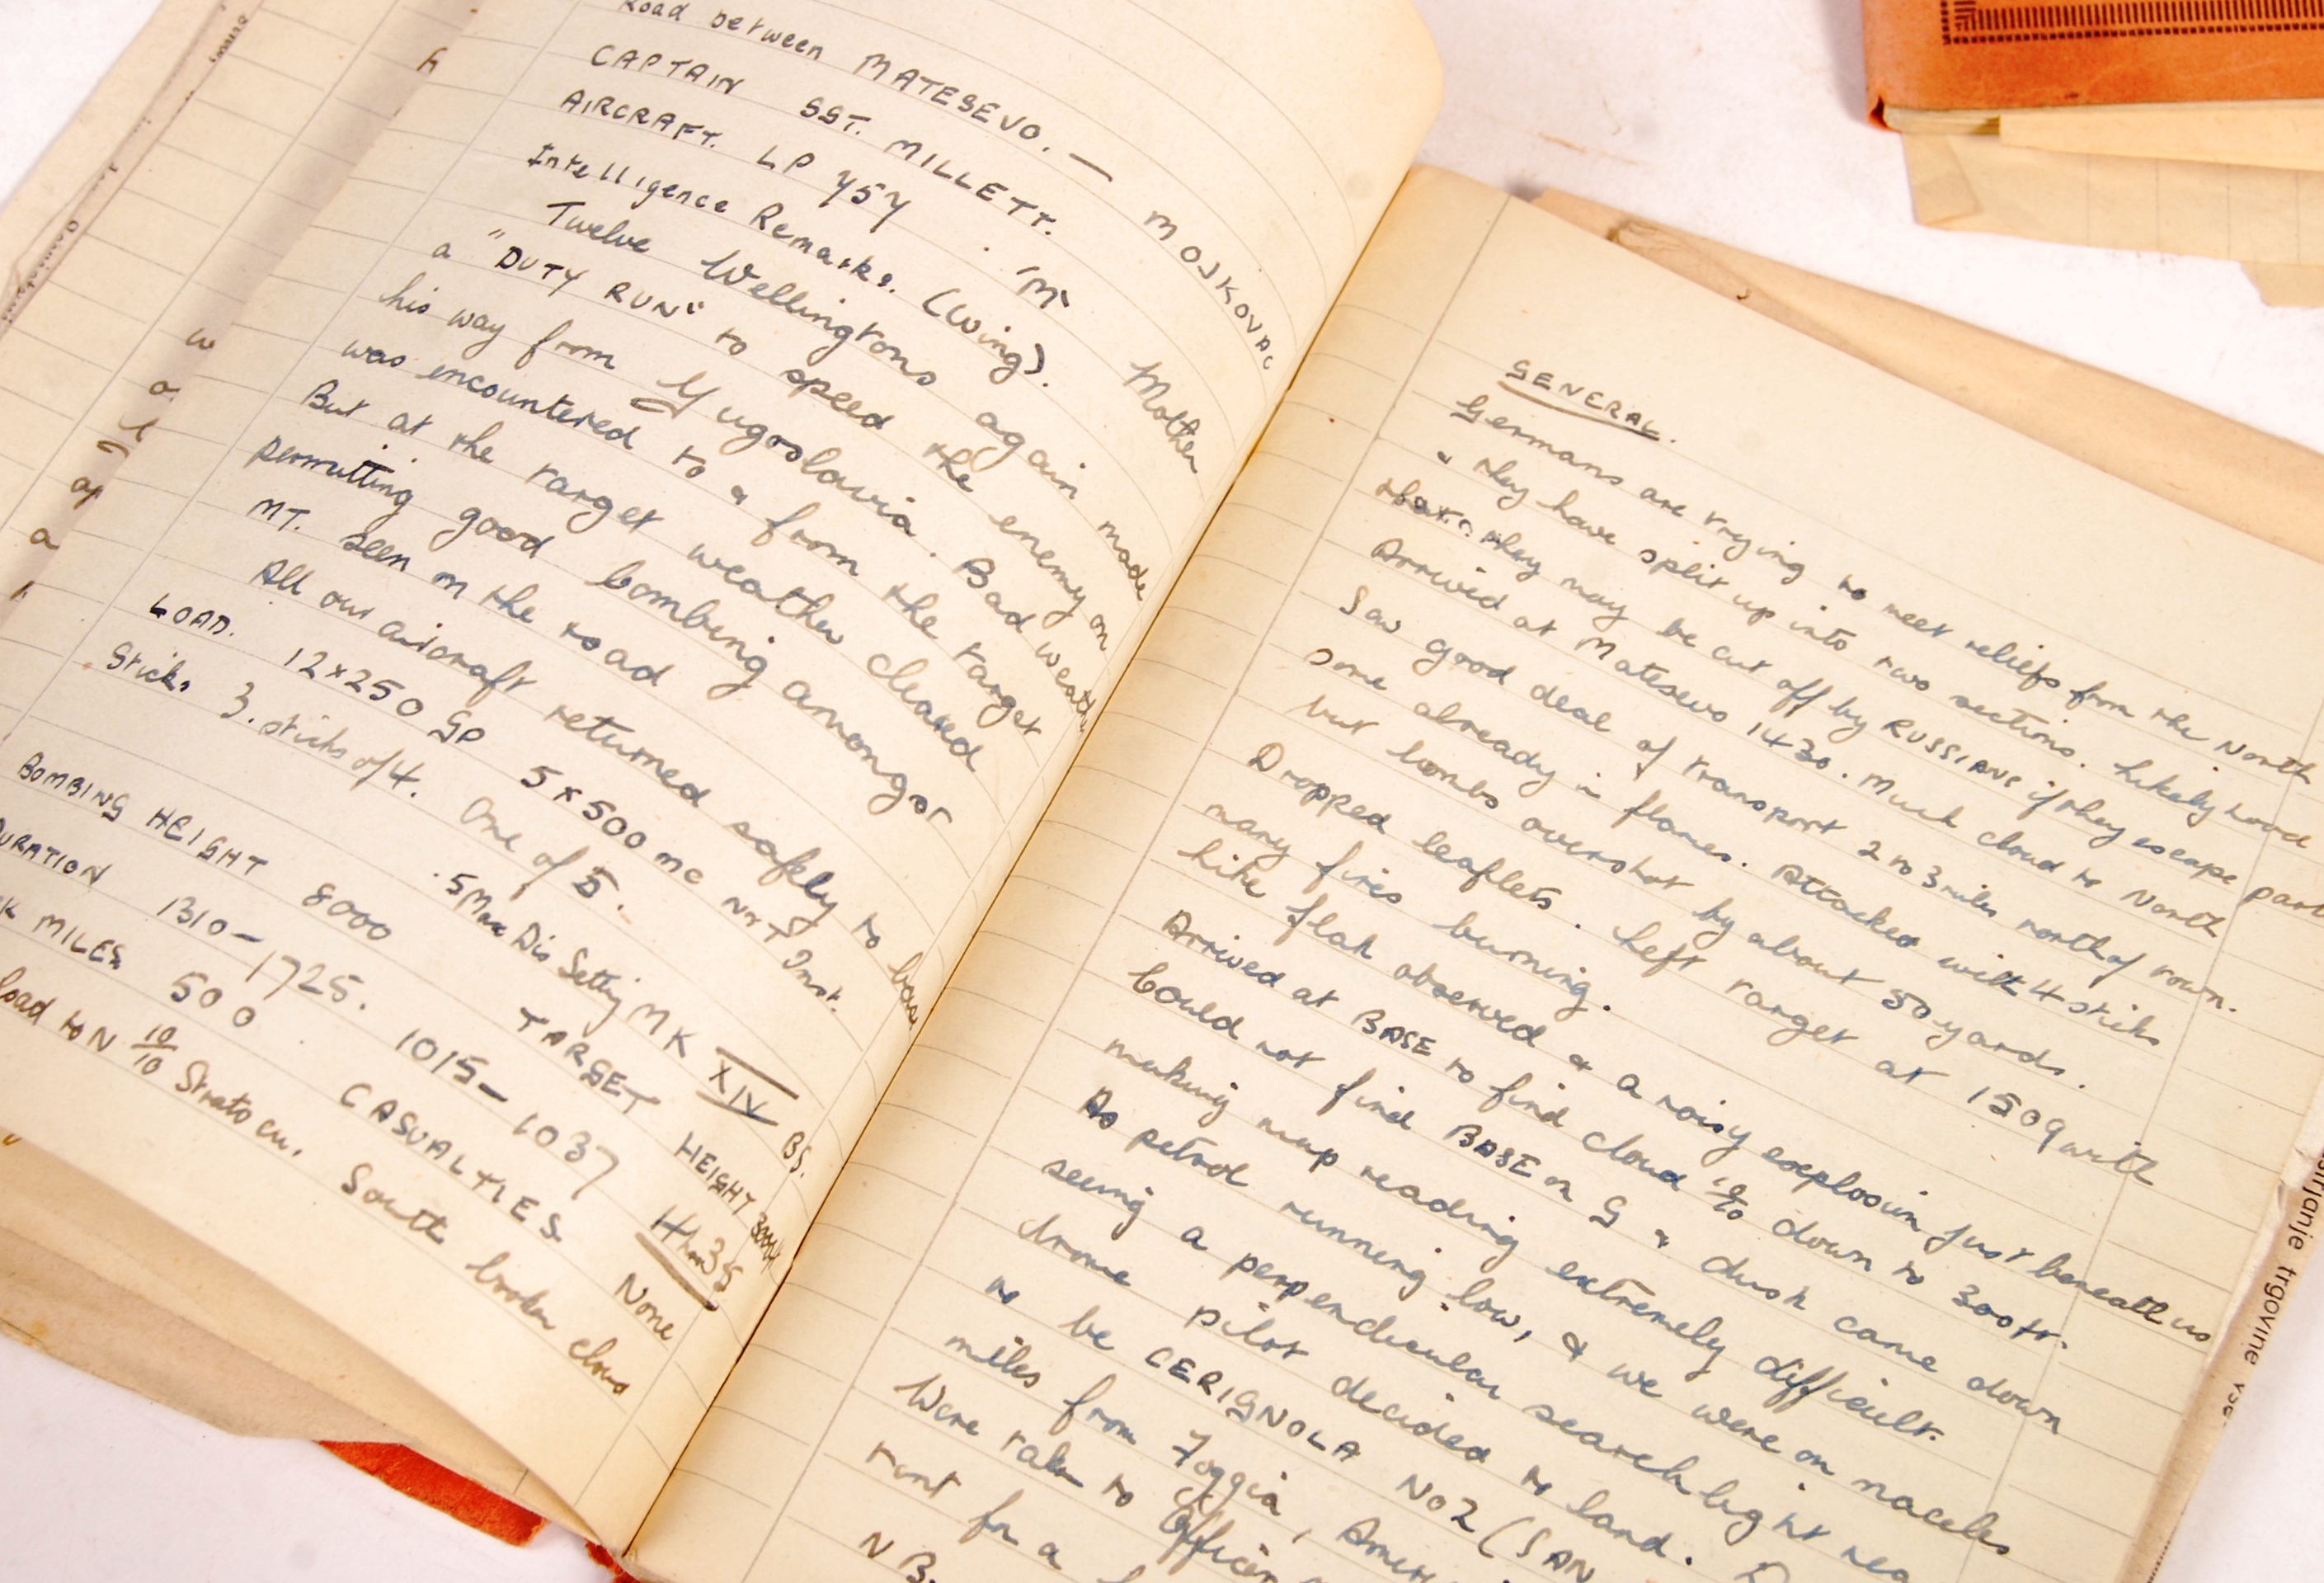 Road between MATESEVO. — MOJKOVAC
CAPTAIN SGT. MILLETT.
AIRCRAFT. LP 757 'M' Mother
Intelligence Remarks. (Wing).
Twelve Wellingtons again made
a "DUTY RUN" to speed the enemy on
his way from Yugoslavia. Bad weather
was encountered to & from the target
But at the target weather cleared
permitting good bombing amongst
MT. seen on the road
All our aircraft returned safely to base
LOAD. 12x250 GP 5x500 mc NT Inst.
Sticks 3. sticks of 4. One of 5.
5 Dis Setting MK XIV BS.
BOMBING HEIGHT 8000 TARGET HEIGHT
DURATION 1310-1725. 1015-1037
MILES 500 CASUALTIES None
to N 10/10 Strato cu. South broken cloud
GENERAL.
Germans are trying to meet reliefs from the North
& they have split up into two sections. Likelyhood
that they may be cut off by RUSSIANS if they escape part
Arrived at Matesevo 1430. Much cloud to North
Saw good deal of transport 2 to 3 miles north of town.
some already in flames. Attacked with 4 sticks
but bombs overshot by about 50 yards.
Dropped leaflets. Left target at 1509 with
many fires burning.
Like flak observed & a noisy explosion just beneath us
Arrived at BASE to find cloud 10/10 down to 300 ft.
Could not find BASE on G & dusk came down
making map reading extremely difficult.
As petrol running low, & we were on nacelles
seeing a perpendicular searchlight nea
drome pilot decided to land.
to be CERIGNOLA No2 (SAN
miles from Foggia,
Were taken to
tent for a
NB.
strjanje trgovine